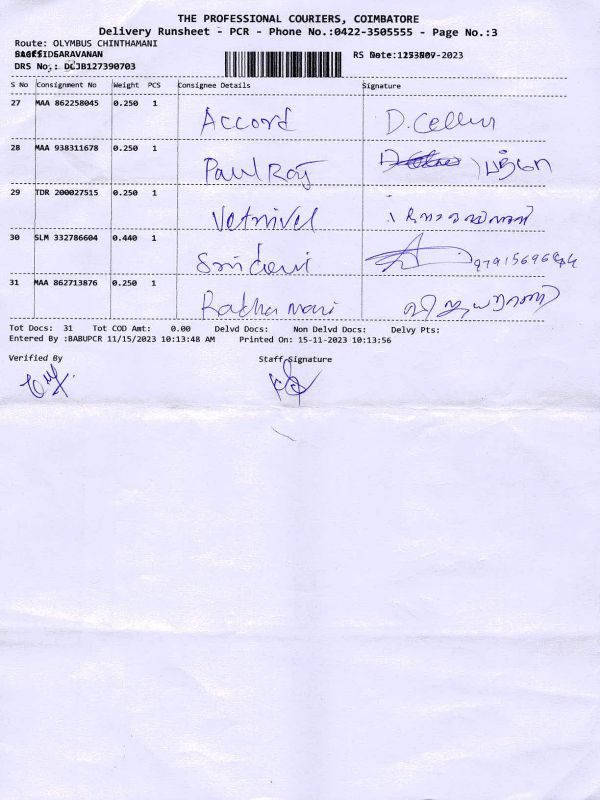 THE PROFESSIONAL COURIERS, COIMBATORE
Delivery Runsheet - PCR - Phone No.:0422-3505555 - Page No.:3
Route: OLYMBUS CHINTHAMANI
SARAVANAN
DRS No.: DCJB127390703
S No Consignment No Weight PCS Consignee Details Signature
27 MAA 862258045 0.250 1 Accord
28 MAA 938311678 0.250 1 Paul Raj
29 TDR 200027515 0.250 1 Vetrivel
30 SLM 332786604 0.440 1 Sridevi
31 MAA 862713876 0.250 1 Radha mani
Tot Docs: 31 Tot COD Amt: 0.00 Delvd Docs: Non Delvd Docs: Delvy Pts:
Entered By :BABUPCR 11/15/2023 10:13:48 AM Printed On: 15-11-2023 10:13:56
Verified By Staff Signature